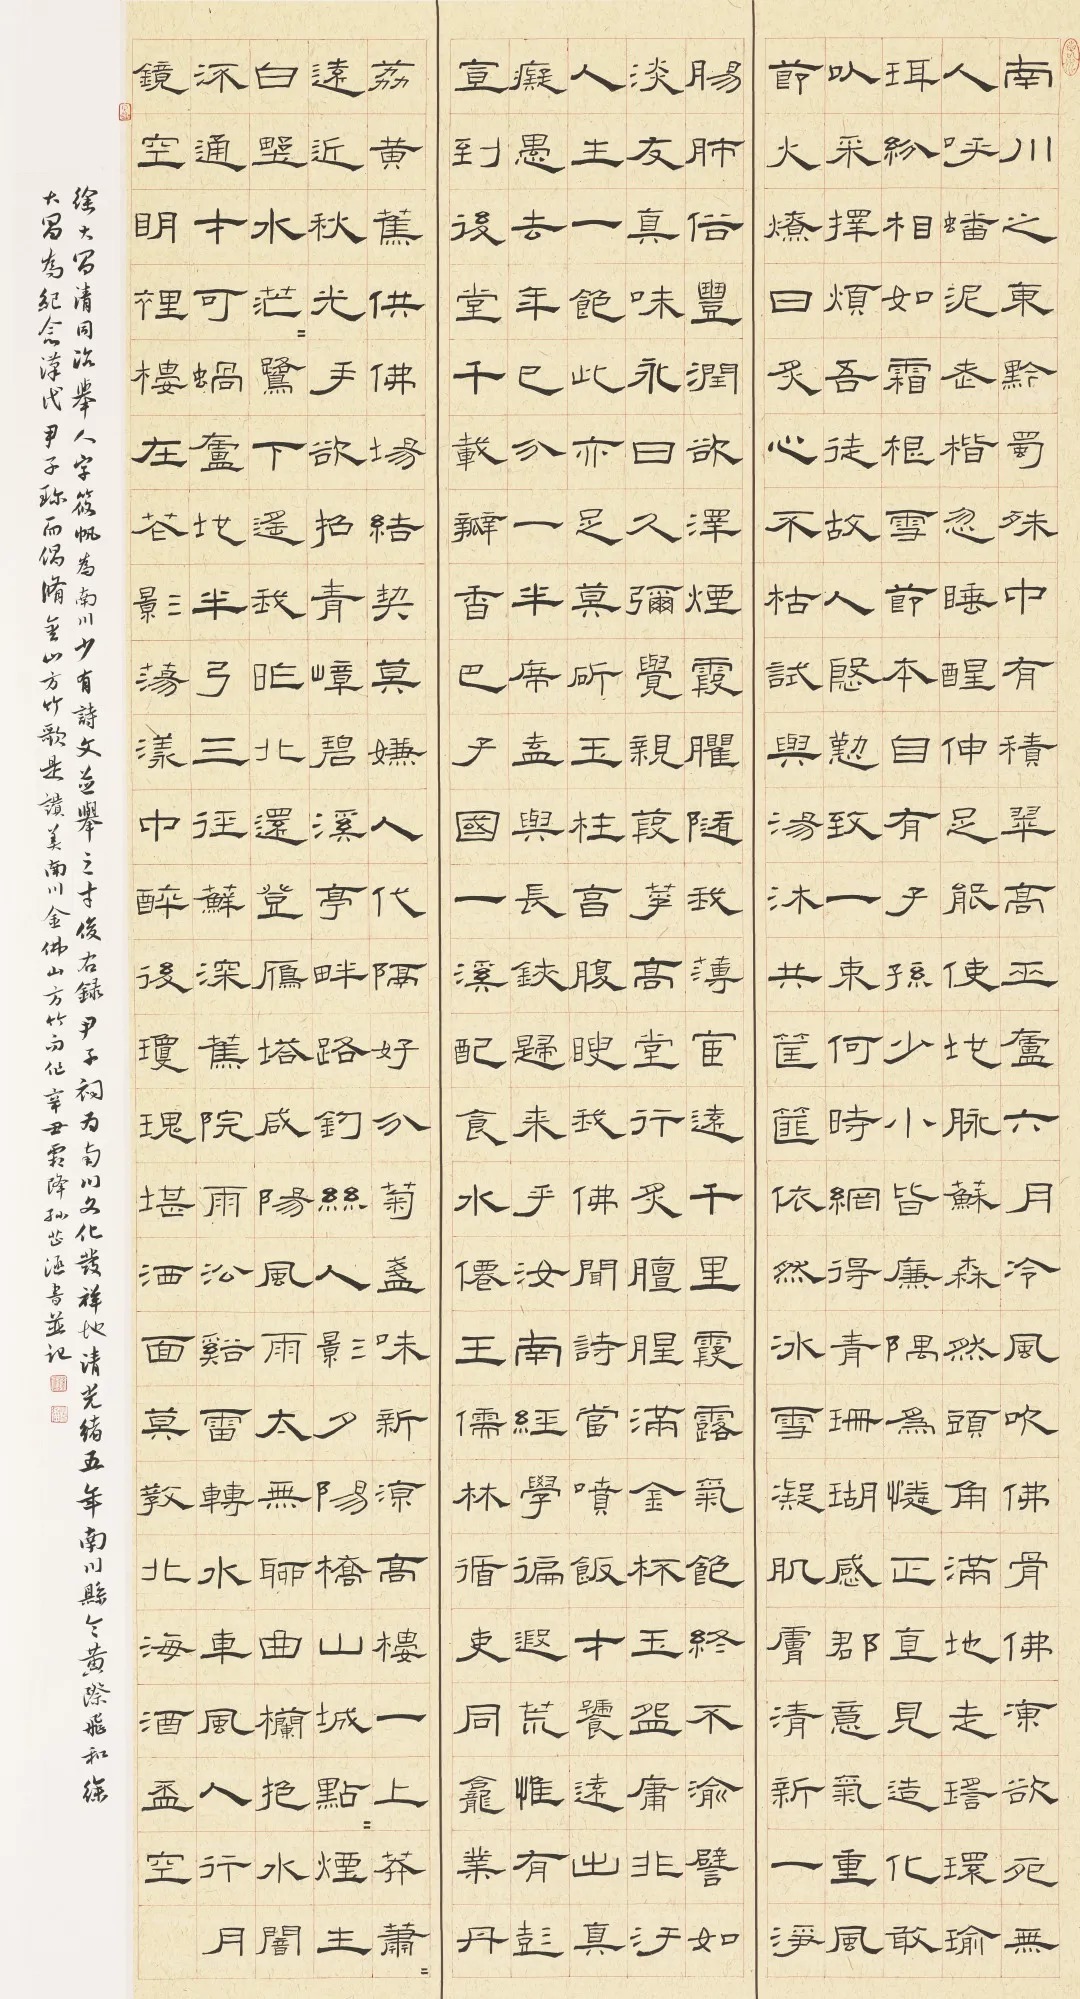 南川之東黔蜀殊中有積翠高巫廬六月冷風吹佛骨佛凍欲死無
人呼蟠泥走楷忽睡醒伸足能使地脉蘇森然頭角滿地走瑻環瑜
珥紛相如霜根雪節本自有子孫少小皆廉隅爲憐正直見造化敢
以采擇煩吾徒故人慇懃致一束何時網得青珊瑚感郡意氣重風
節火燎曰炙心不枯試與湯沐共筐篚依然冰雪凝肌膚清新一淨
腸肺俗豐潤欲澤煙霞臞隨我薄宦遠千里霞露氣飽終不渝譬如
淡友真味永日久彌覺親葭莩高堂行炙膻腥滿金杯玉盌庸非汙
人生一飽此亦足莫斫玉柱宮腹瞍我佛聞詩當噴飯才饕遠出真
癡愚去年已分一半席盍與長鋏歸来乎汝南經學徧遐荒惟有彭
宣到後堂千載瓣香巴子國一溪配食水僊王儒林循吏同龕業丹
荔黃蕉供佛場結契莫嫌人代隔好分菊盞味新涼高樓一上莽蕭〻
遠近秋光手欲招青嶂碧溪亭畔路釣絲人影夕陽橋山城點〻煙生
白墅水茫〻鷺下遙我昨北還登雁塔咸陽風雨太無聊曲欄抱水闇
沠通才可蝸廬地半弓三徑蘇深蕉院雨汾谿雷轉水車風人行月
鏡空明裡樓在花影蕩漾中醉後瓊瑰堪洒面莫教北海酒盃空
徐大昌清同治舉人字筱帆為南川少有詩文並舉之才俊右錄尹子祠为南川文化發祥地清光緒五年南川縣令黃際飛和徐
大昌為紀念漢代尹子珎而偶脩金山方竹歌是讚美南川金佛山方竹而作辛丑霜降孫芷涵書並記